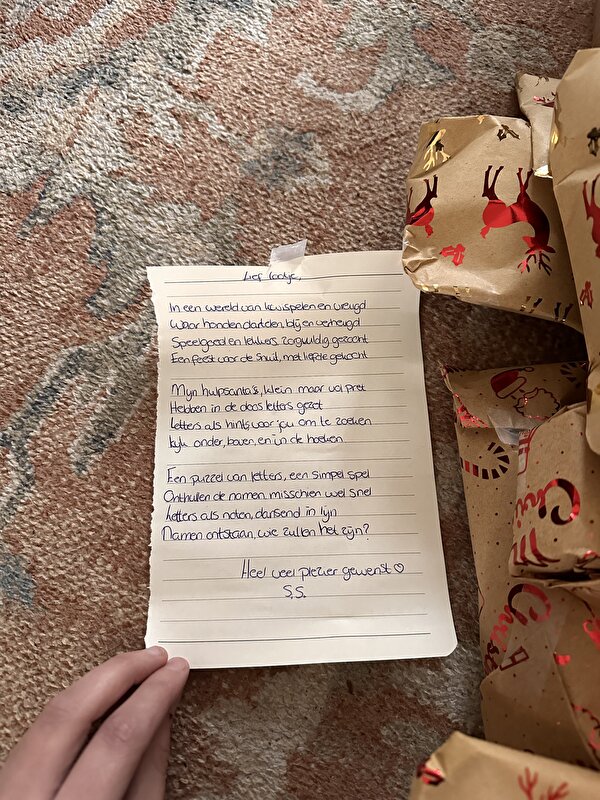 Lief lootje,
In een wereld van kwispelen en vreugd
Waar honden dartelen, blij en verheugd
Speelgoed en lekkers zorgvuldig gezocht
Een feest voor de snuit, met liefde gekocht
Mijn hulpsanta's, klein maar vol pret
Hebben in de doos letters gezet
Letters als hints, voor jou om te zoeken
Kijk onder, boven, en in de hoeken
Een puzzel van letters, een simpel spel
Onthullen de namen misschien wel snel
Letters als noten, dansend in lijn
Namen ontstaan, wie zullen het zijn?
Heel veel plezier gewenst ♡
S.S.